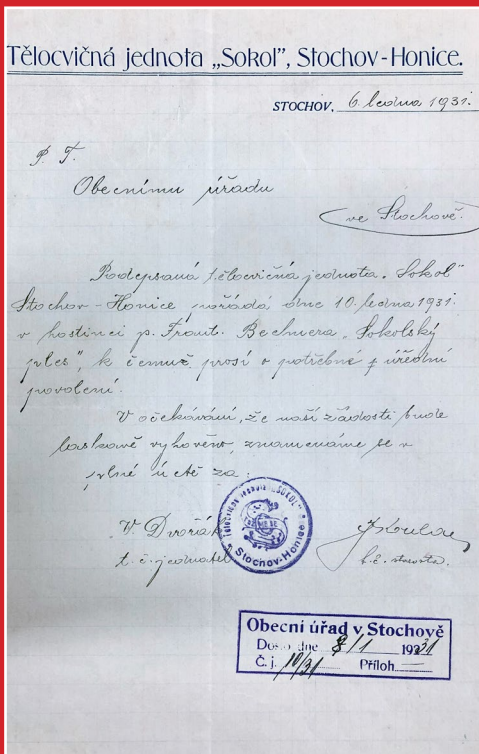 Tělocvičná jednota „Sokol", Stochov-Honice.
STOCHOV, 6. ledna 1931.
P. T.
Obecnímu úřadu
ve Stochově.
Podepsaná tělocvičná jednota „Sokol"
Stochov-Honice pořádá dne 10. ledna 1931.
v hostinci p. Frant. Bechnera „Sokolský
ples", k čemuž prosí o potřebné úřední
povolení.
V očekávání, že naší žádosti bude
laskavě vyhověno, znamenáme se v
plné úctě za:
Tělocvičná jednota „SOKOL"
Stochov-Honice
V. Dvořák
t. č. jednatel
t. č. starosta.
Obecní úřad v Stochově
Došlo dne 8/1 1931
Č. j. 10/31 Příloh —